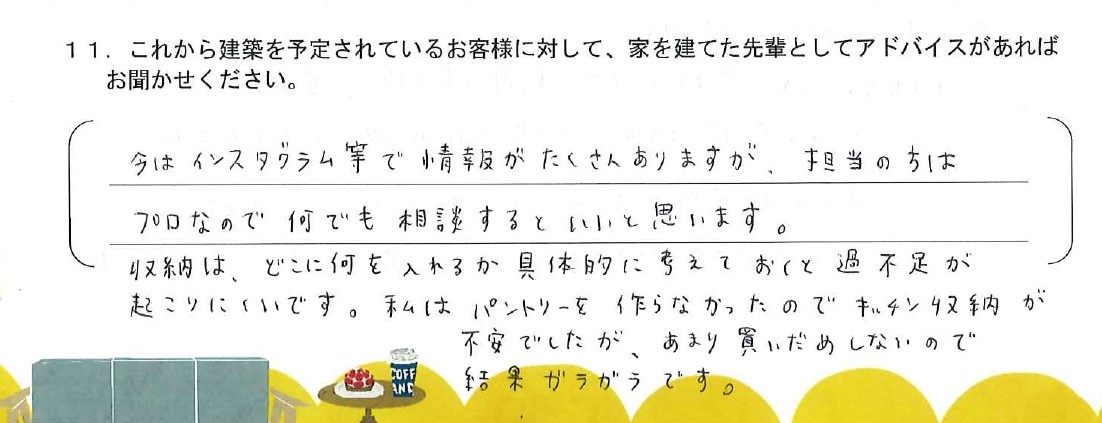 １１．これから建築を予定されているお客様に対して、家を建てた先輩としてアドバイスがあれば
お聞かせください。
今はインスタグラム等で情報がたくさんありますが、担当の方は
プロなので何でも相談するといいと思います。
収納は、どこに何を入れるか具体的に考えておくと過不足が
起こりにくいです。私はパントリーを作らなかったのでキッチン収納が
不安でしたが、あまり買いだめしないので
結果ガラガラです。
COFF
AND